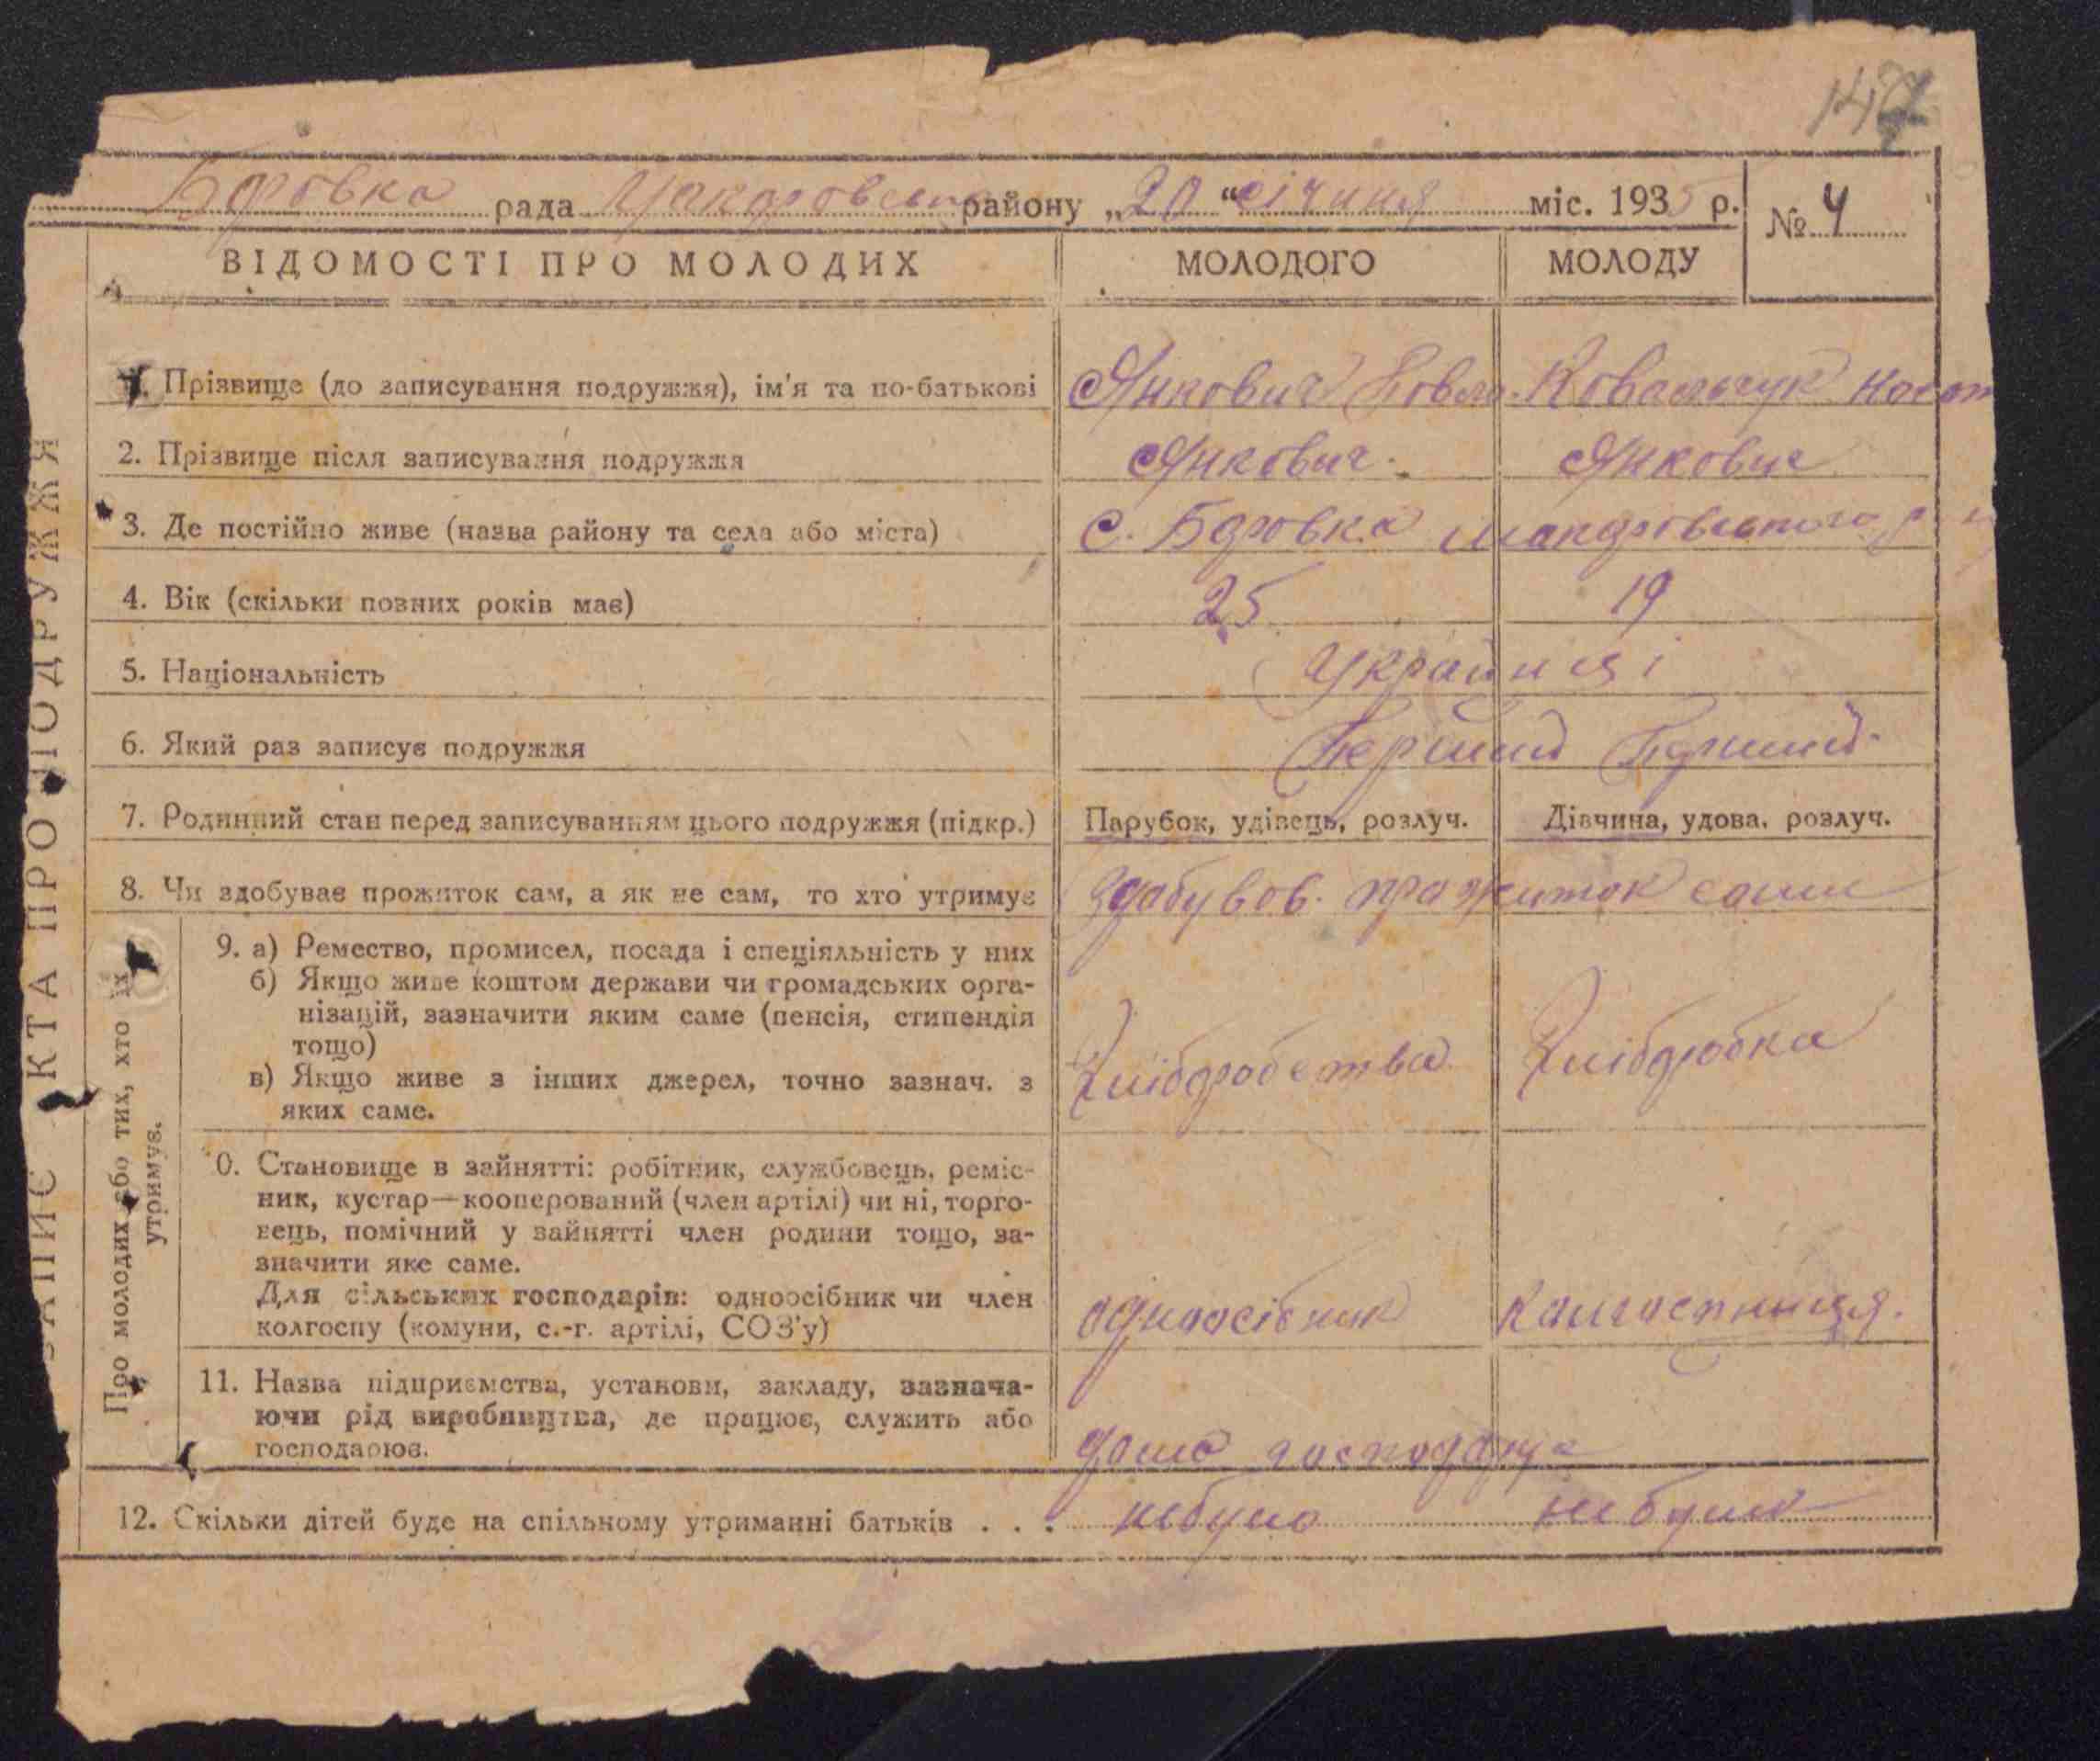 147
Бдровка рада района „20" січиня міс. 1935 р. № 4
ВІДОМОСТІ ПРО МОЛОДИХ МОЛОДОГО МОЛОДУ
ЗАПИС АКТА ПРО ПОДРУЖЖЯ
1. Прізвище (до записування подружжя), ім'я та по-батькові Янкович Ковальчук
2. Прізвище після записування подружжя Янкович Янкович
3. Де постійно живе (назва району та села або міста) с. Бдровка
4. Вік (скільки повних років має) 25 19
5. Національність Українці
6. Який раз записує подружжя Перший Перший
7. Родинний стан перед записуванням цього подружжя (підкр.) Парубок, удівець, розлуч. Дівчина, удова, розлуч.
8. Чи здобуває прожиток сам, а як не сам, то хто утримує прожиток сами
Про молодих або тих, хто їх
утримує.
9. а) Ремество, промисел, посада і спеціяльність у них
б) Якщо живе коштом держави чи громадських орга-
нізацій, зазначити яким саме (пенсія, стипендія
тощо) Хліборобство Хліборобка
в) Якщо живе з інших джерел, точно зазнач. з
яких саме.
10. Становище в зайнятті: робітник, службовець, реміс-
ник, кустар—кооперований (член артілі) чи ні, торго-
вець, помічний у зайнятті член родини тощо, за-
значити яке саме.
Для сільських господарів: одноосібник чи член
колгоспу (комуни, с.-г. артілі, СОЗ'у) одноосібник колгоспниця.
11. Назва підприємства, установи, закладу, зазнача-
ючи рід виробництва, де працює, служить або
господарює. дома господарує
12. Скільки дітей буде на спільному утриманні батьків . . . небуло небуло